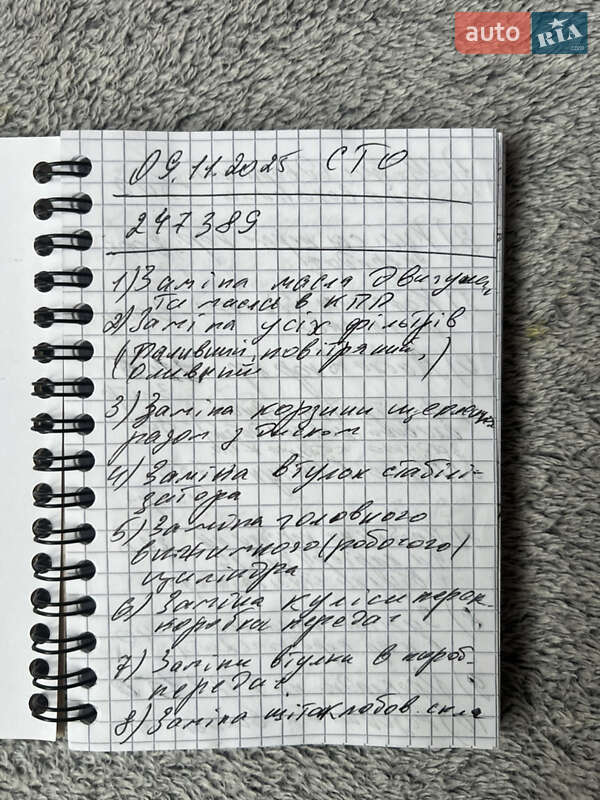 auto RIA .com
09.11.2025 СТО
247389
1) Заміна масла двигуна,
та масла в КПП
2) Заміна усіх фільтрів
(паливний, повітряний,
оливний)
3) Заміна корзини щеплення
разом з диском
4) Заміна втулок стабілі-
затора
5) Заміна головного
вижимного (робочого)
циліндра
6) Заміна куліси
коробки передач
7) Заміна втулки в короб.
передач
8) Заміна щіток лобов. скла